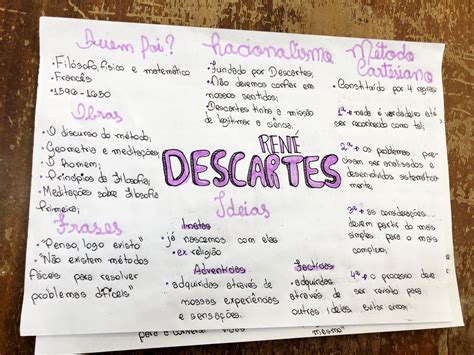 Quem foi?
• Filósofo, físico e matemático
• Francês
• 1596 - 1650
Obras
• O discurso do método;
• Geometria e meditações;
• O Homem;
• Princípios da Filosofia;
• Meditações sobre filosofia
Primeira;
Frases
• "Penso, logo existo"
• "Não existem métodos
fáceis para resolver
problemas difíceis"
Racionalismo
• Fundado por Descartes;
• Não devemos confiar em
nossos sentidos;
• Descartes tinha a missão
de legitimar a ciência;
RENÉ
DESCARTES
Ideias
Inatas
• já nascemos com elas
• ex religião
Adventícias
• adquiridas através de
nossas experiências
e sensações.
Factícias
• adquiridas
através de
outras ideias
Método
Cartesiano
• Constituído por 4 regras:
1ª → nada é verdadeiro até
ser reconhecido como tal;
2ª → os problemas precisam
ser analisados e
desenvolvidos sistematicamente
3ª → as considerações
devem partir do mais
simples para o mais
complexo;
4ª → o processo deve
ser revisto para
evitar erros;
mesmo"